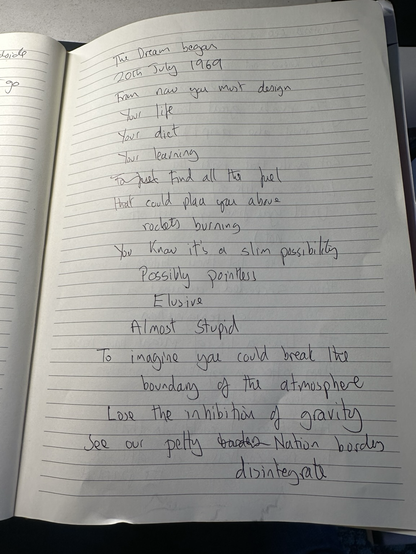 go
The Dream began
20th July 1969
From now you must design
Your life
Your diet
Your learning
To fuel Find all the fuel
that could place you above
rockets burning
You Know it's a slim possibility
Possibly pointless
Elusive
Almost Stupid
To imagine you could break the
boundary of the atmosphere
Lose the inhibition of gravity
See our petty Nation borders
disintegrate